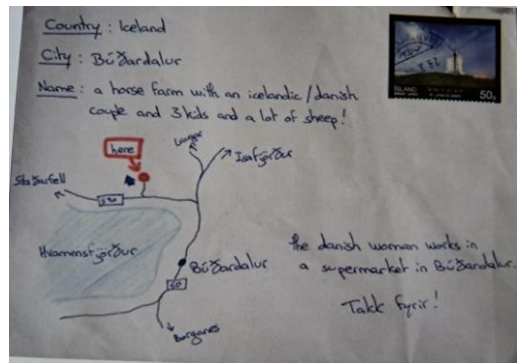 Country : Iceland
City : Búðardalur
Name : a horse farm with an icelandic/danish
couple and 3 kids and a lot of sheep!
ÍSLAND
50g
here
Laugar
Isafjörður
590
Hvammsfjörður
Búðardalur
60
the danish woman works in
a supermarket in Búðardalur.
Takk fyrir!
Borganes